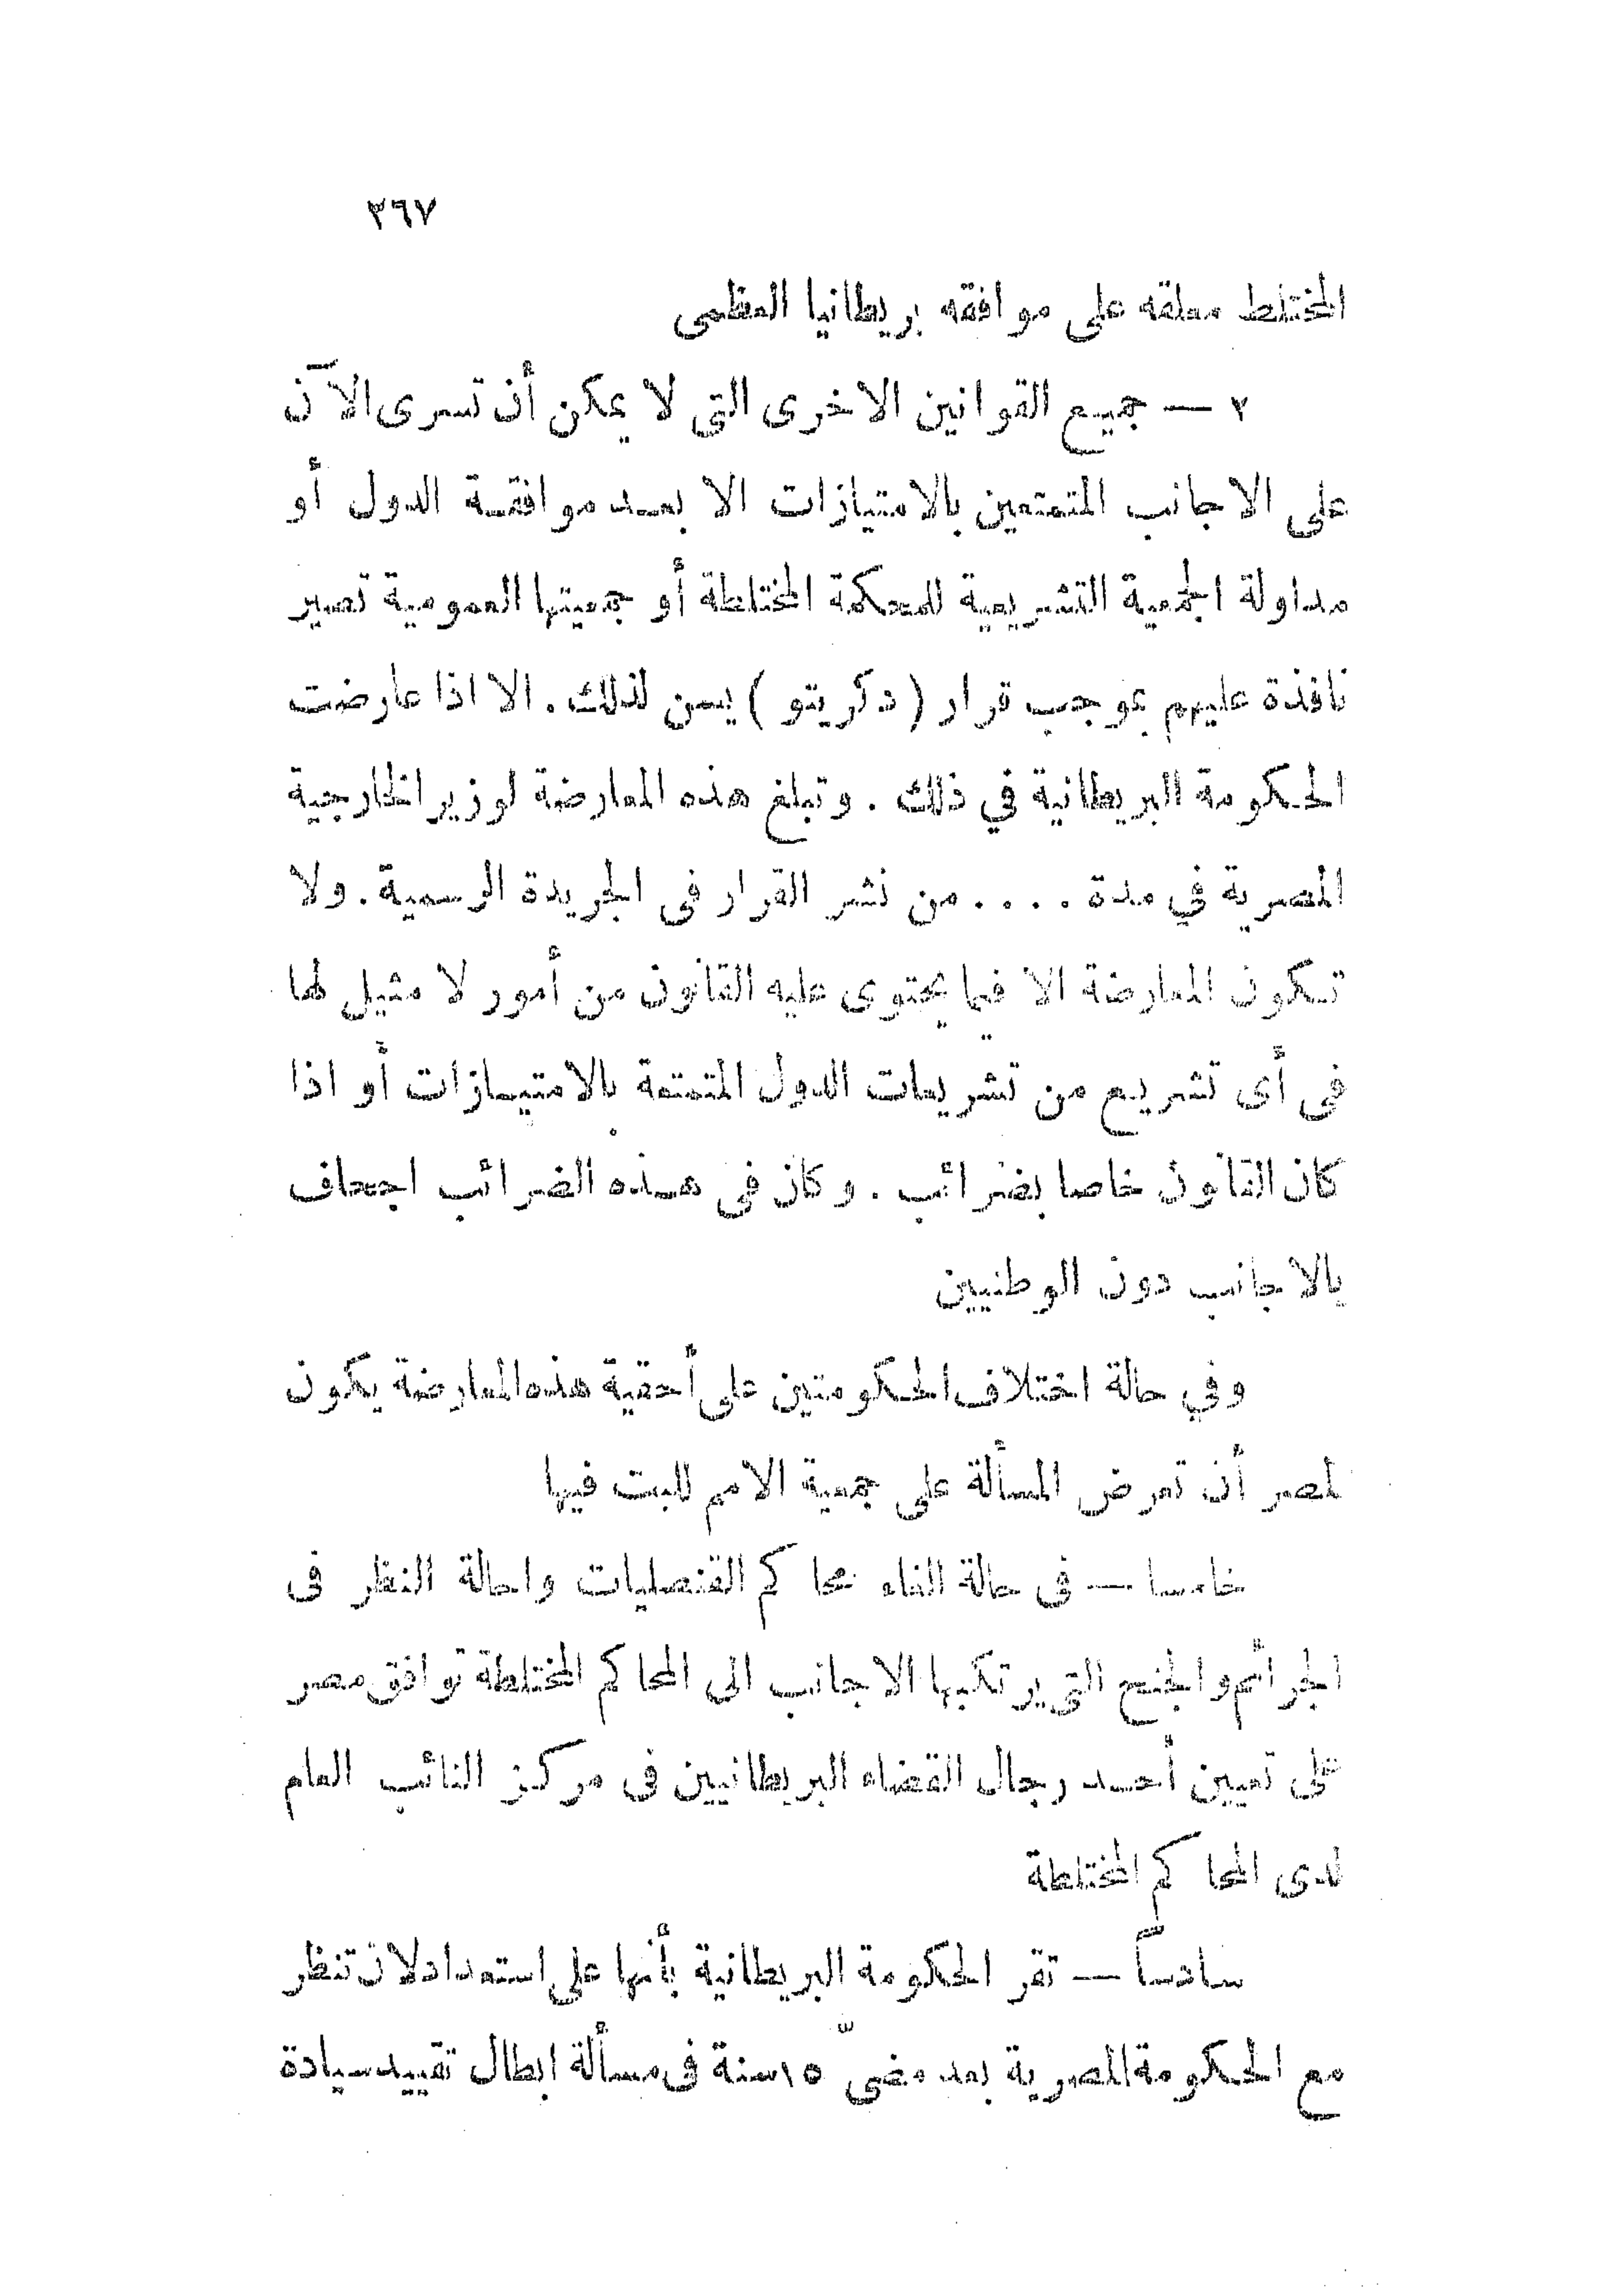 ٣٦٧
المختلط معلقه على موافقه بريطانيا العظمى
٢ — جميع القوانين الاخرى التى لا يمكن أن تسرى الآن
على الاجانب المتمتعين بالامتيازات الا بعد موافقة الدول أو
مداولة الجمعية التشريعية للمحكمة المختلطة أو جمعيتها العمومية تصير
نافذة عليهم بموجب قرار ( دكريتو ) يسن لذلك . الا اذا عارضت
الحكومة البريطانية في ذلك . وتبلغ هذه المعارضة لوزير الخارجية
المصرية في مدة . . . . من نشر القرار فى الجريدة الرسمية . ولا
تكون المعارضة الا فيما يحتوى عليه القانون من أمور لا مثيل لها
فى أى تشريع من تشريعات الدول المتمتعة بالامتيازات أو اذا
كان القانون خاصا بضرائب . وكان فى هذه الضرائب اجحاف
بالاجانب دون الوطنيين
وفي حالة اختلاف الحكومتين على أحقية هذه المعارضة يكون
لمصر أن تعرض المسألة على جمعية الامم للبت فيها
خامسا — فى حالة الغاء محاكم القنصليات واحالة النظر فى
الجرائم والجنح التى يرتكبها الاجانب الى المحاكم المختلطة توافق مصر
على تعيين أحد رجال القضاء البريطانيين فى مركز النائب العام
لدى المحاكم المختلطة
سادساً — تقر الحكومة البريطانية بأنها على استعداد لان تنظر
مع الحكومة المصرية بعد مضىّ ١٥ سنة فى مسألة ابطال تقييد سيادة